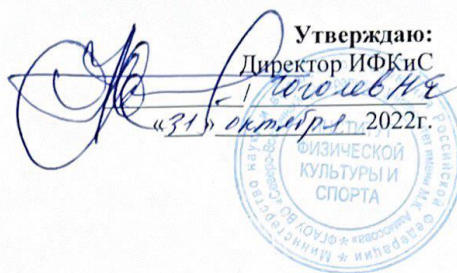 Утверждаю:
Директор ИФКиС
/ Гоголев Н.Е
«31» октября 2022г.
ИНСТИТУТ
ФИЗИЧЕСКОЙ
КУЛЬТУРЫ И
СПОРТА